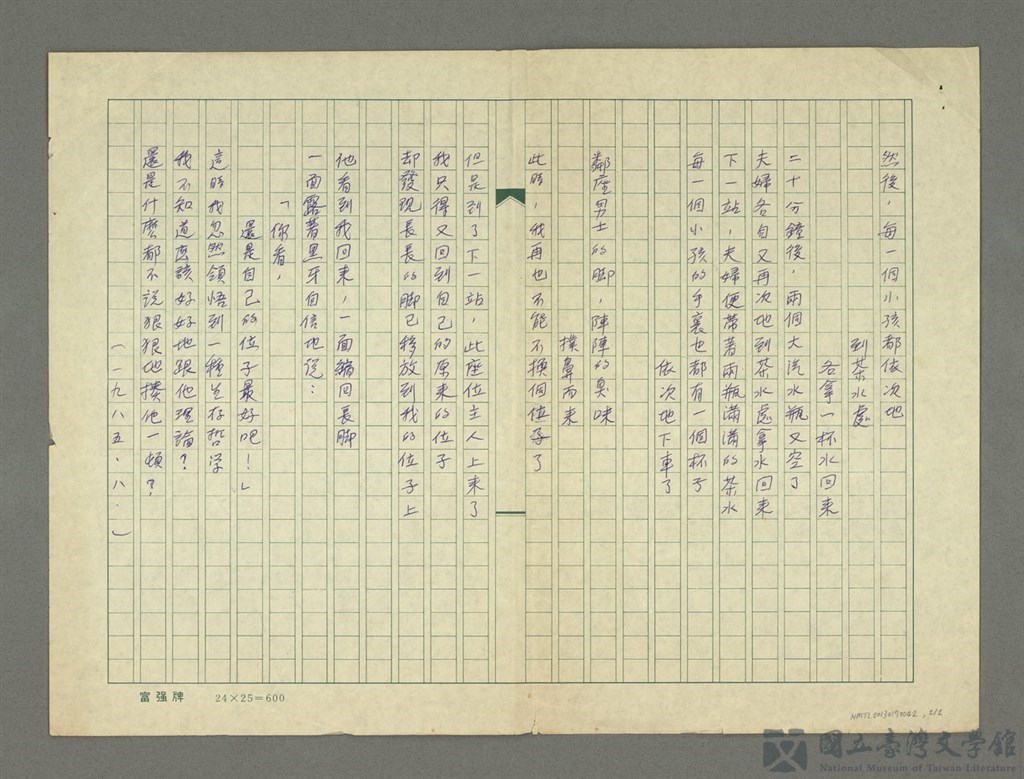 然後，每一個小孩都依次地
到茶水處
各拿一杯水回來
二十分鐘後，兩個大汽水瓶又空了
夫婦各自又再次地到茶水處拿水回來
下一站，夫婦便帶著兩瓶滿滿的茶水
每一個小孩的手裏也都有一個杯子
依次地下車了
鄰座男士的腳，陣陣的臭味
撲鼻而來
此時，我再也不能不換個位子了
但是到了下一站，此座位主人上來了
我只得又回到自己的原來的位子
却發現長長的腳已移放到我的位子上
他看到我回來，一面縮回長腳
一面露著黑牙自信地說：
「你看，
還是自己的位子最好吧！」
這時我忽然領悟到一種生存哲学
我不知道應該好好地跟他理論？
還是什麼都不說狠狠地揍他一頓？
（一九八五．八．）
富强牌 24×25=600
NMTL20130170042, 2/2
國立臺灣文學館
National Museum of Taiwan Literature